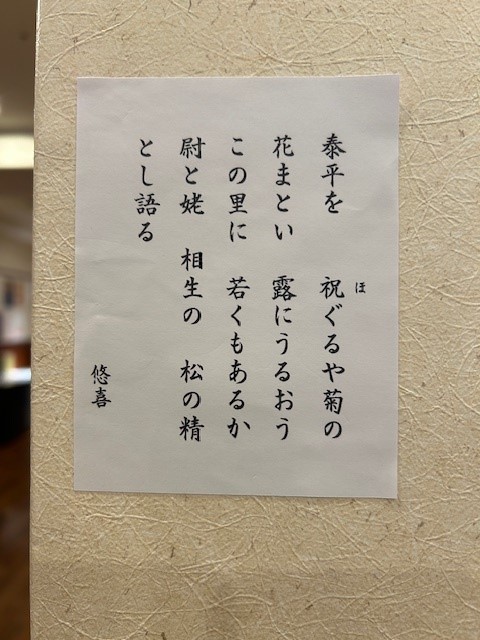 泰平を　祝ぐるや菊の
ほ
花まとい　露にうるおう
この里に　若くもあるか
尉と姥　相生の　松の精
とし語る
悠喜